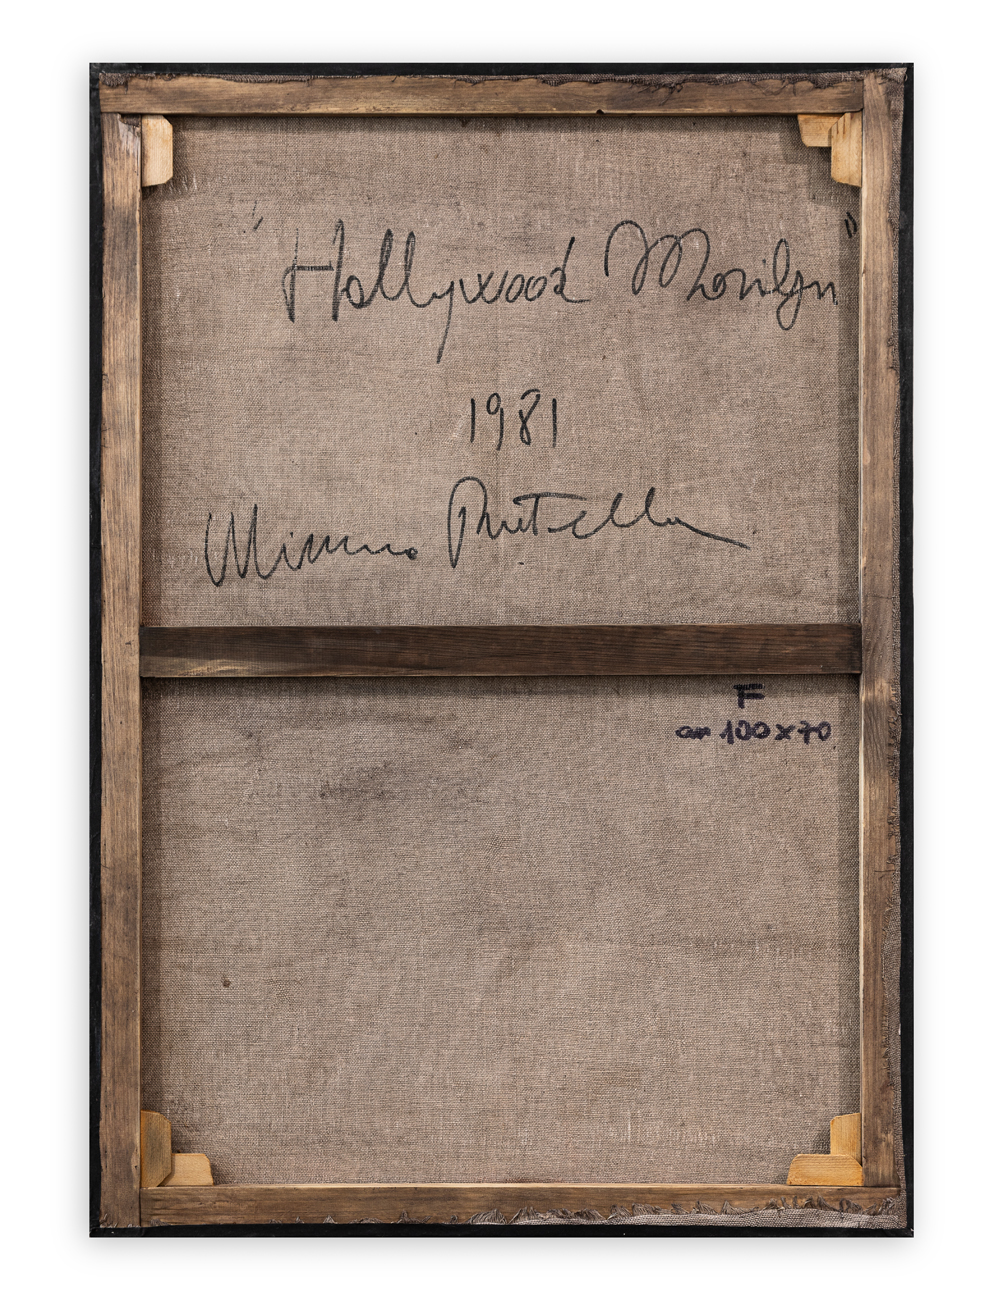 "Hollywood Marilyn"
1981
Mimmo Rotella
F
cm 100x70